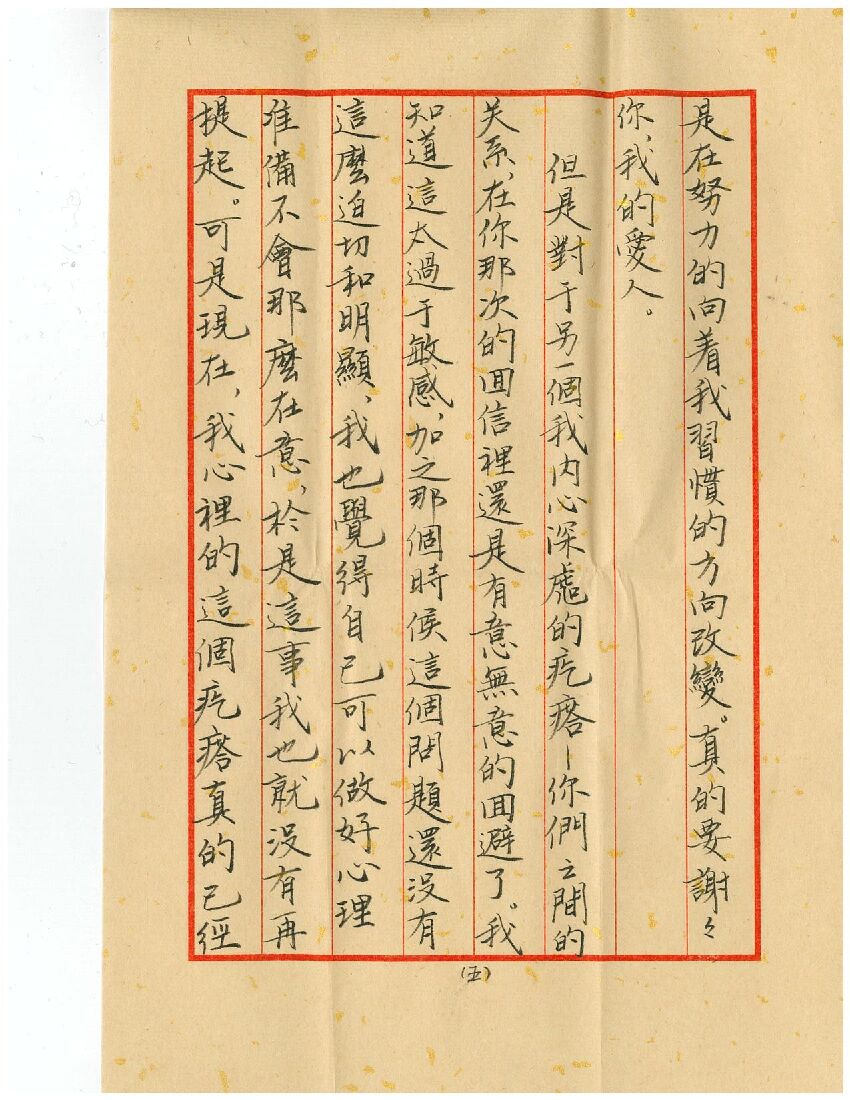 是在努力的向着我習慣的方向改變。真的要謝々
你，我的愛人。
但是對于另一個我内心深處的疙瘩－你們之間的
关系，在你那次的囬信裡還是有意無意的囬避了。我
知道這太過于敏感，加之那個時候這個問題還没有
這麼迫切和明顯，我也覺得自己可以做好心理
准備不會那麼在意，於是這事我也就没有再
提起。可是現在，我心裡的這個疙瘩真的已經
(五)